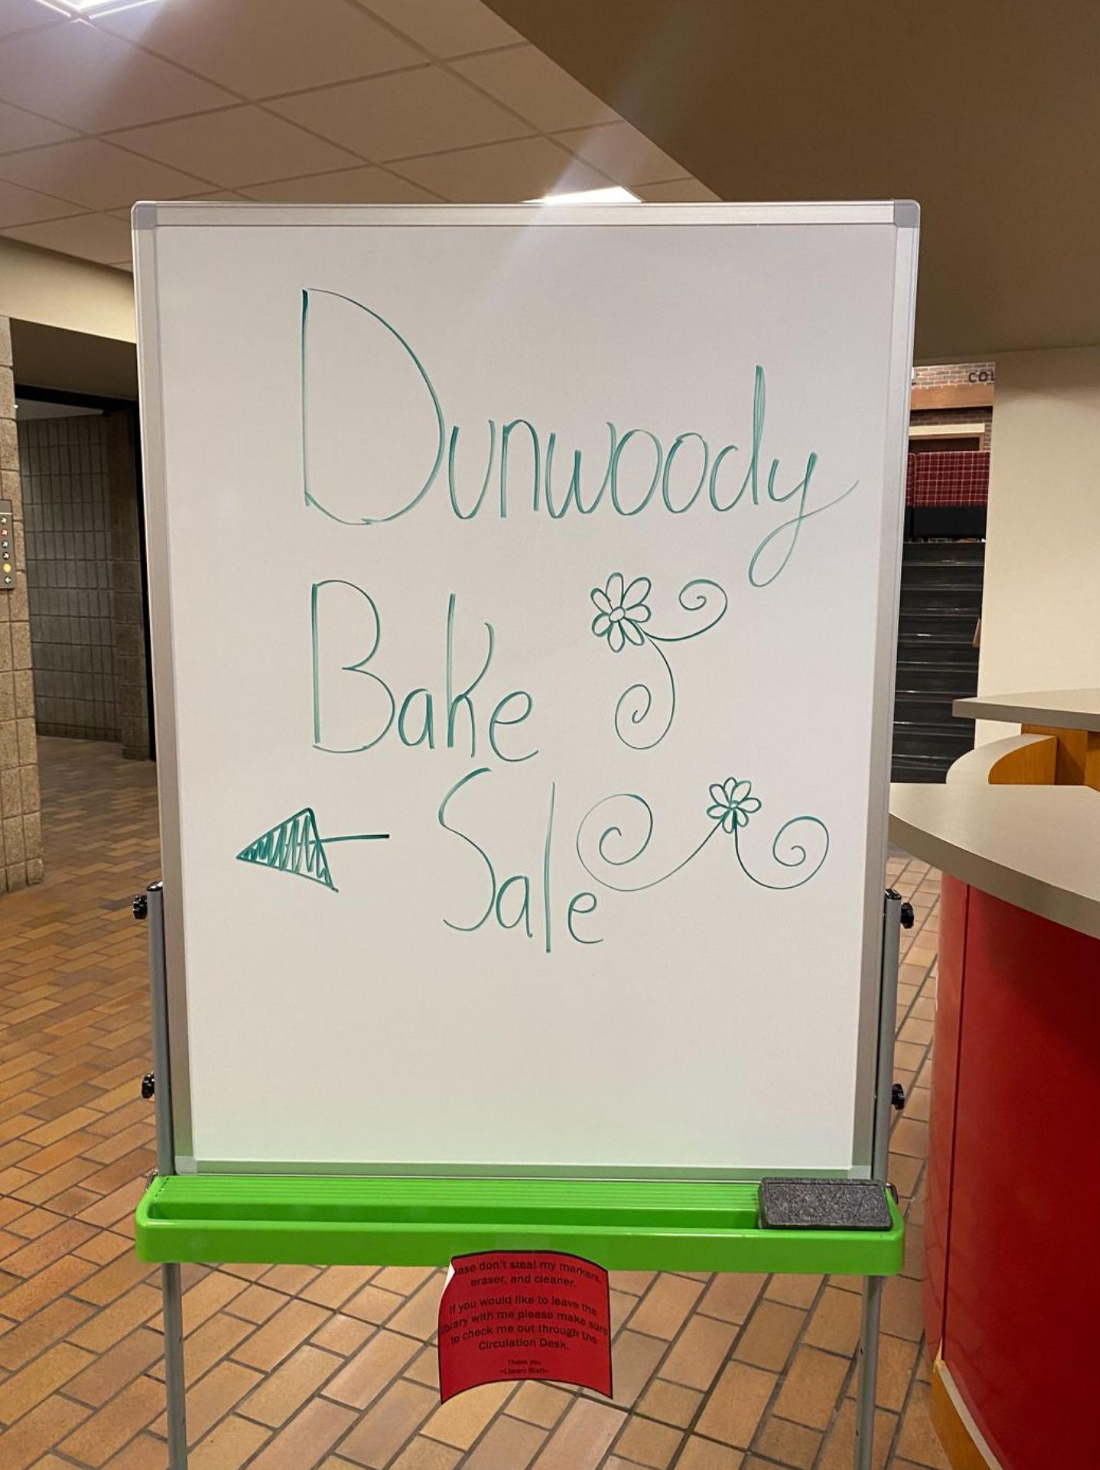 Dunwoody
Bake
Sale
COL
ase don't steal my markers,
eraser, and cleaner.
If you would like to leave the
brary with me please make sure
to check me out through the
Circulation Desk.
Thank you
~Library Staff~